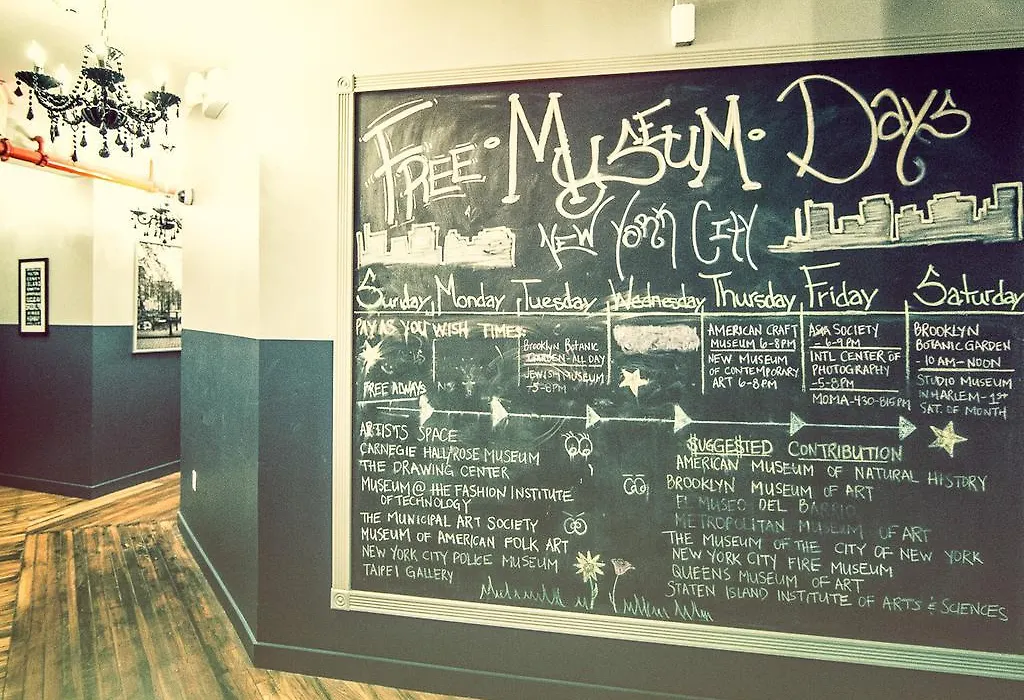 FREE • MUSEUM • DAYS
NEW YORK CITY
Sunday Monday Tuesday Wednesday Thursday Friday Saturday
PAY AS YOU WISH TIMES:
BROOKLYN BOTANIC
GARDEN - ALL DAY
JEWISH MUSEUM
-5-8PM
AMERICAN CRAFT
MUSEUM 6-8PM
NEW MUSEUM
OF CONTEMPORARY
ART 6-8PM
ASIA SOCIETY
- 6-9PM
INT'L CENTER OF
PHOTOGRAPHY
-5-8PM
MOMA-430-815PM
BROOKLYN
BOTANIC GARDEN
-10AM-NOON
STUDIO MUSEUM
IN HARLEM-1ST
SAT. OF MONTH
FREE ALWAYS
ARTISTS SPACE
CARNEGIE HALL/ROSE MUSEUM
THE DRAWING CENTER
MUSEUM @ THE FASHION INSTITUTE
OF TECHNOLOGY
THE MUNICIPAL ART SOCIETY
MUSEUM OF AMERICAN FOLK ART
NEW YORK CITY POLICE MUSEUM
TAIPEI GALLERY
SUGGESTED CONTRIBUTION
AMERICAN MUSEUM OF NATURAL HISTORY
BROOKLYN MUSEUM OF ART
EL MUSEO DEL BARRIO
METROPOLITAN MUSEUM OF ART
THE MUSEUM OF THE CITY OF NEW YORK
NEW YORK CITY FIRE MUSEUM
QUEENS MUSEUM OF ART
STATEN ISLAND INSTITUTE OF ARTS & SCIENCES